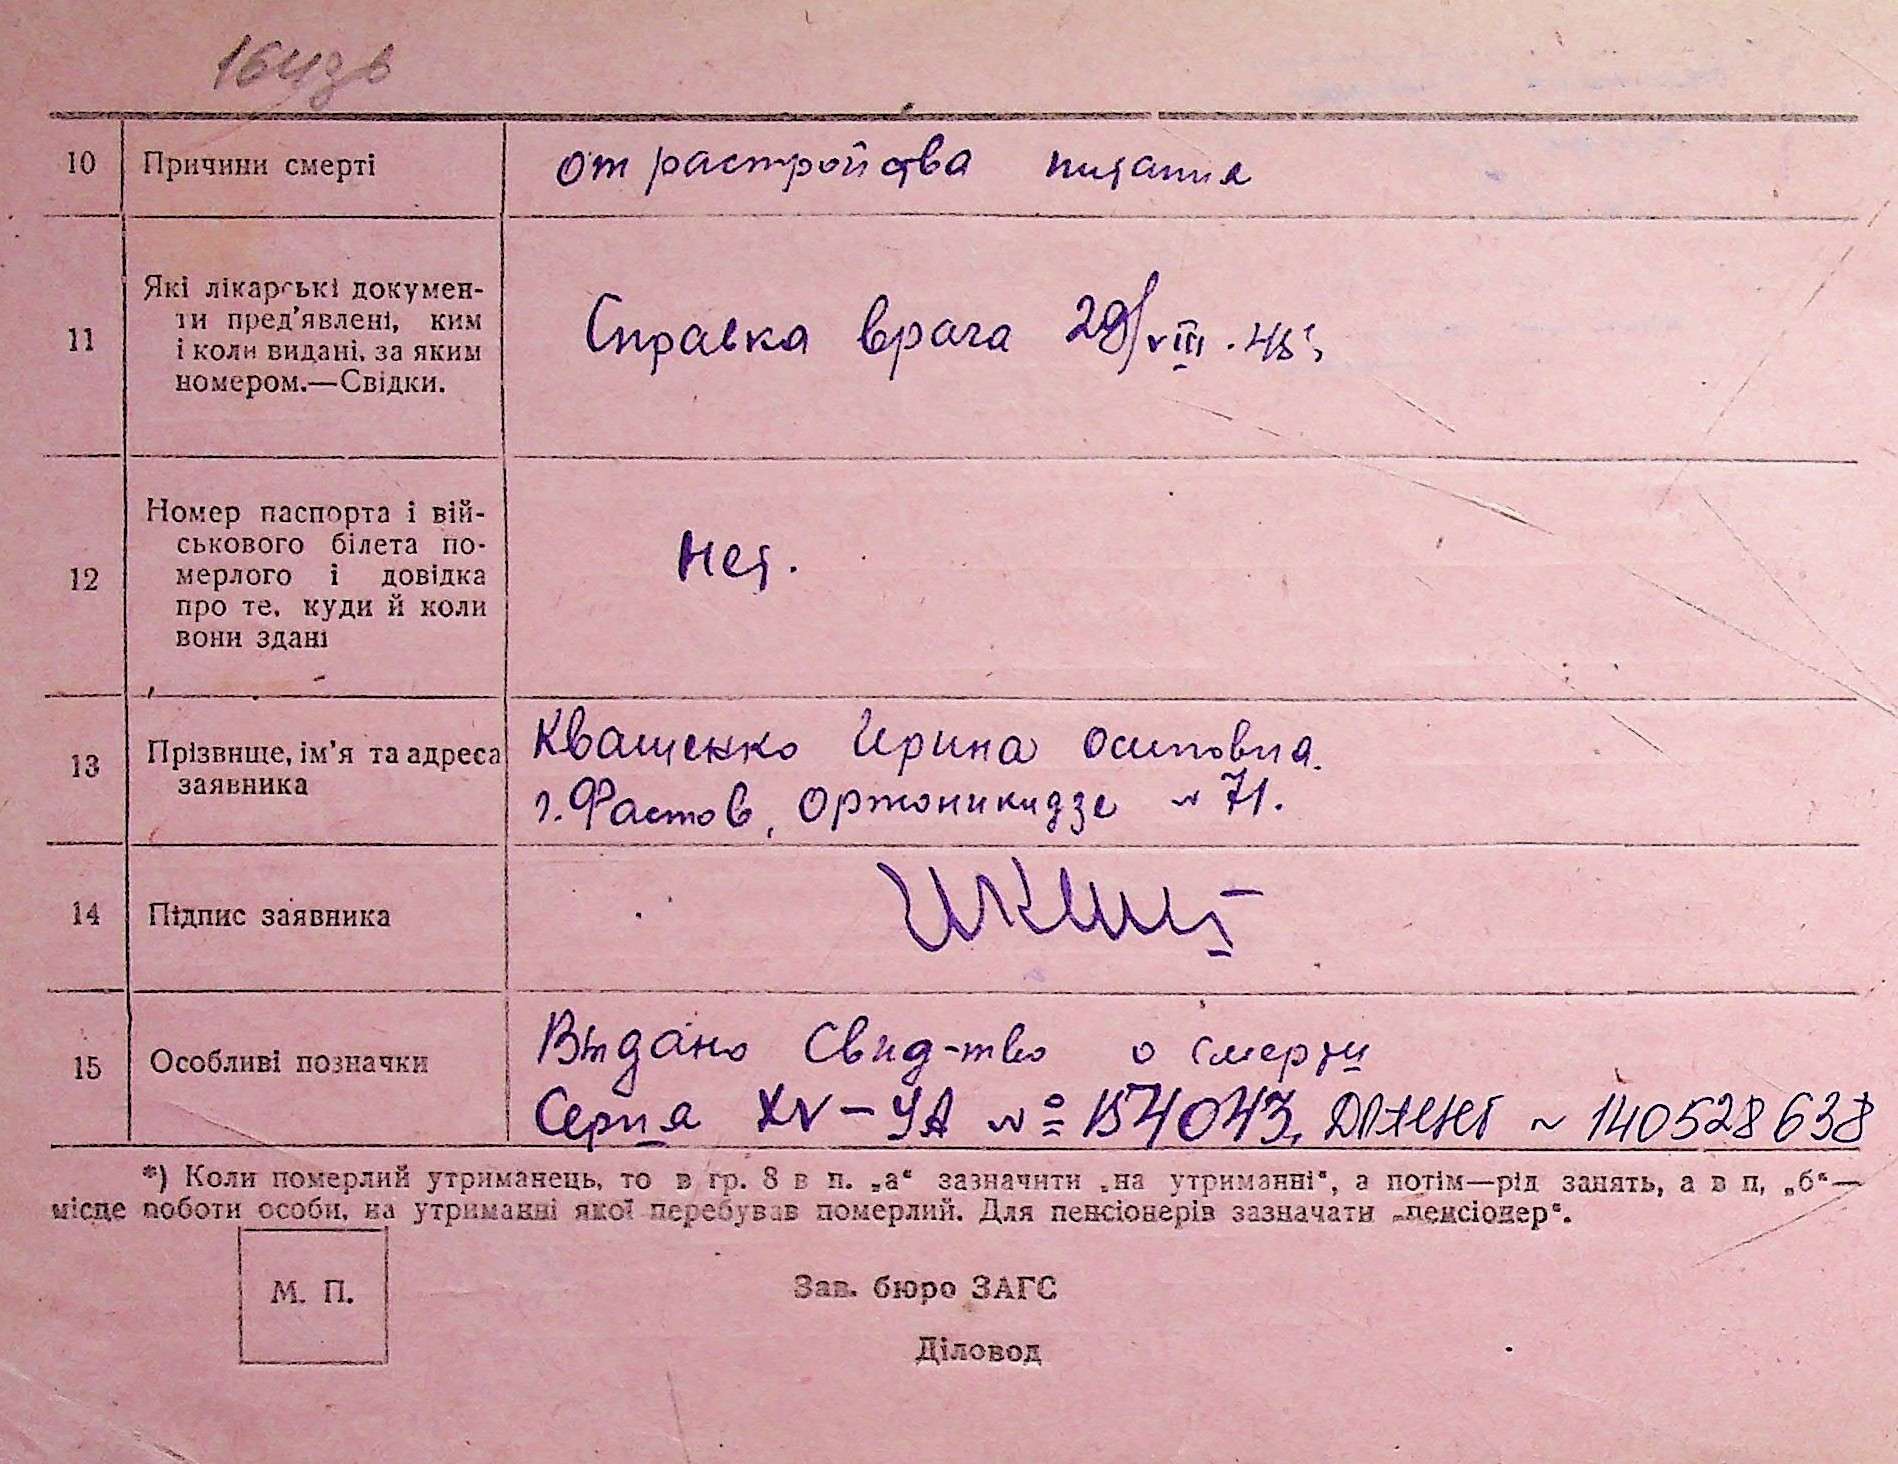 10 Причини смерті от растройства питания
11 Які лікарські докумен-
ти пред'явлені, ким
і коли видані, за яким
номером.—Свідки.
Справка врача 29/VIII.
12 Номер паспорта і вій-
ськового білета по-
мерлого і довідка
про те, куди й коли
вони здані
Нет.
13 Прізвище, ім'я та адреса
заявника
Кващенко Ирина Осиповна.
г. Фастов, Оржоникидзе № 71.
14 Підпис заявника
15 Особливі позначки
Выдано Свид-тво о смерти
Серия XV-УА № 154043, 140528638
*) Коли померлий утриманець, то в гр. 8 в п. „а“ зазначити „на утриманні“, а потім—рід занять, а в п, „б“—
місце роботи особи, на утриманні якої перебував померлий. Для пенсіонерів зазначати „пенсіонер“.
М. П.
Зав. бюро ЗАГС
Діловод